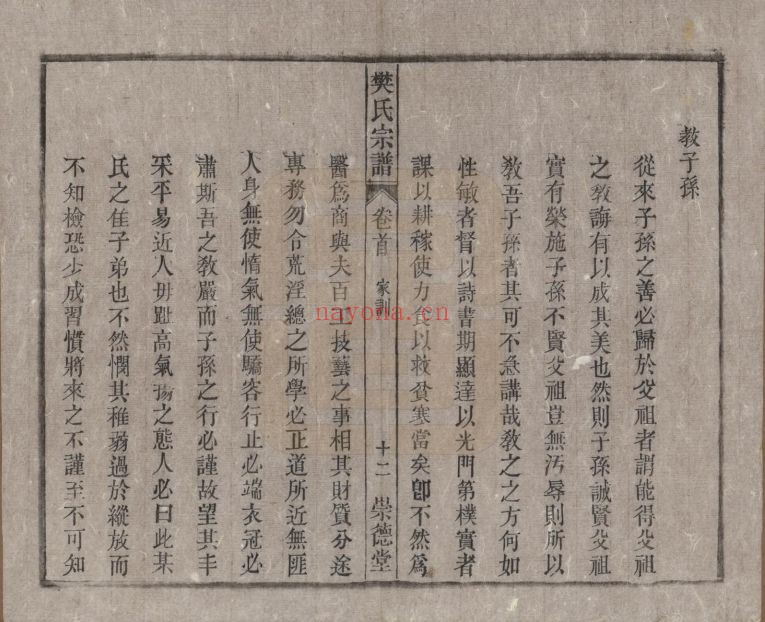 教子孫
從來子孫之善必歸於父祖者謂能得父祖
之教誨有以成其美也然則子孫誠賢父祖
實有榮施子孫不賢父祖豈無汚辱則所以
敎吾子孫者其可不急講哉敎之之方何如
性敏者督以詩書期顯達以光門第樸實者
課以耕稼使力食以救貧寒當矣卽不然爲
樊氏宗譜 卷首 家訓 十二 崇德堂
醫爲商與夫百工技藝之事相其財質分途
專務勿令荒淫總之所學必正道所近無匪
人身無使惰氣無使驕客行止必端衣冠必
肅斯吾之敎嚴而子孫之行必謹故望其丰
采平易近人毋趾高氣揚之態人必曰此某
氏之佳子弟也不然憫其稚弱過於縱放而
不知檢恐少成習慣將來之不謹至不可知
nayona.cn